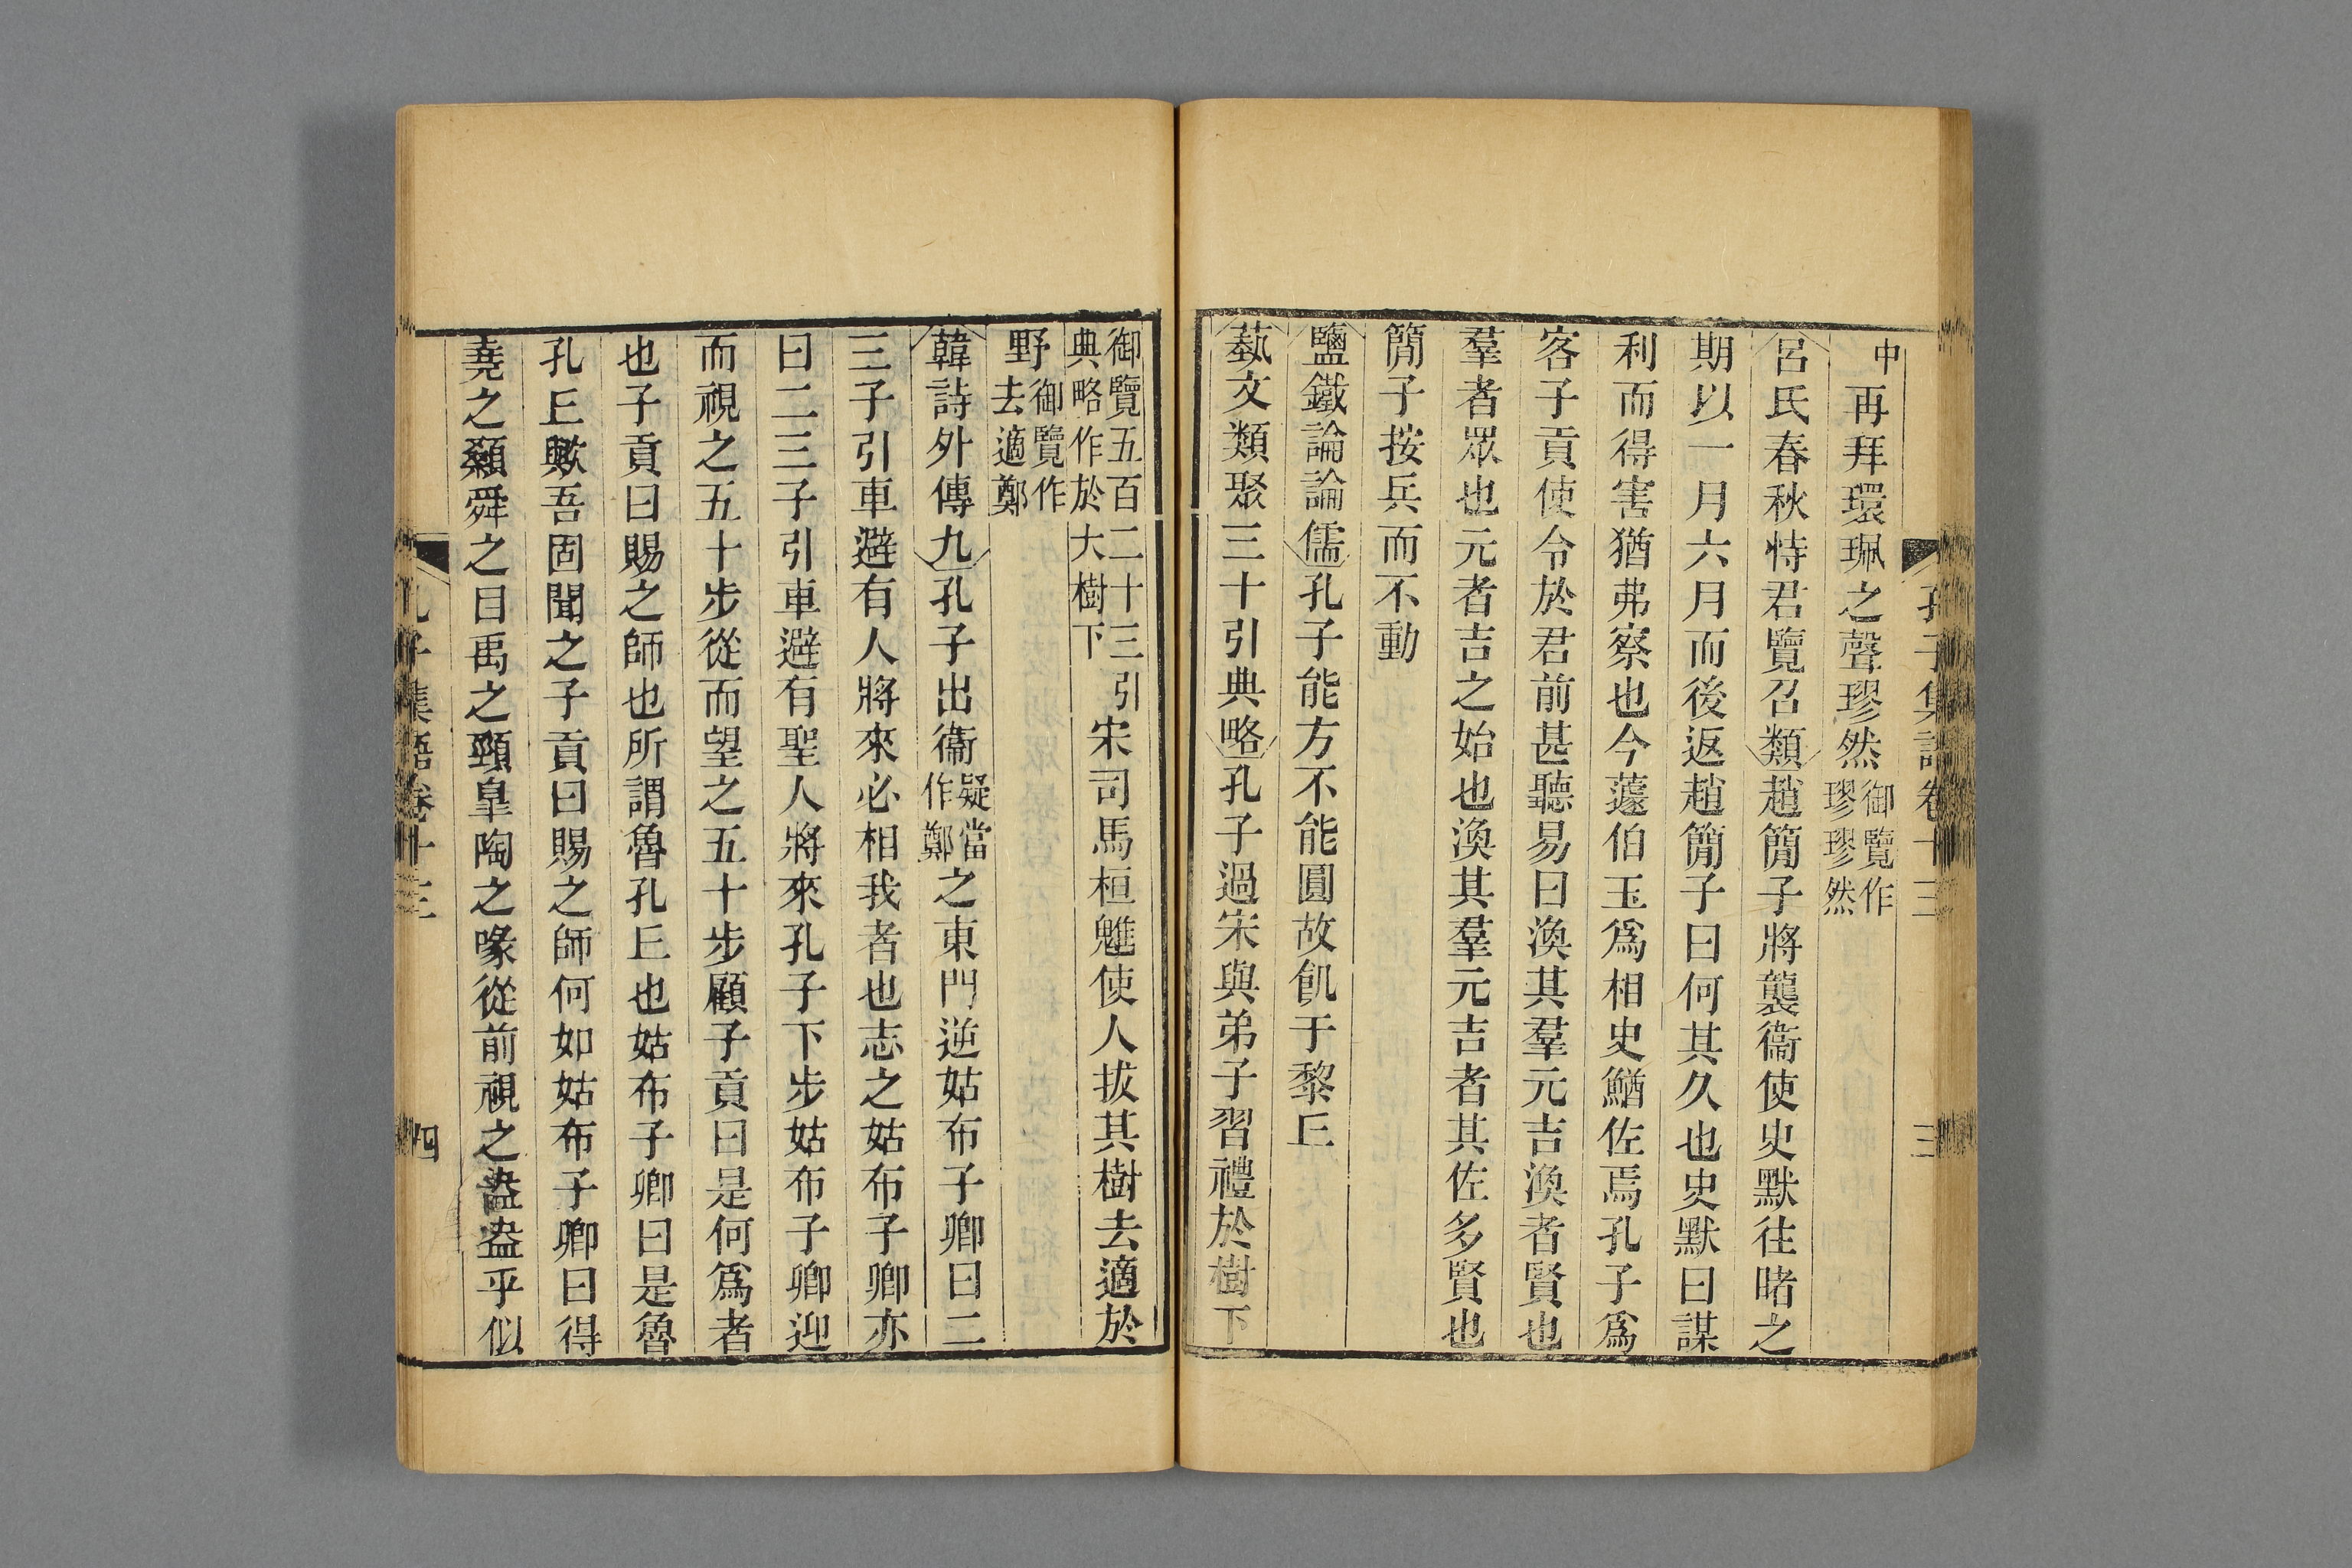 孔子集語卷十三 三
中再拜環珮之聲璆然御覽作璆璆然
呂氏春秋恃君覽召類趙簡子將襲衞使史默往睹之
期以一月六月而後返趙簡子曰何其久也史默曰謀
利而得害猶弗察也今蘧伯玉爲相史鰌佐焉孔子爲
客子貢使令於君前甚聽易曰渙其羣元吉渙者賢也
羣者眾也元者吉之始也渙其羣元吉者其佐多賢也
簡子按兵而不動
鹽鐵論論儒孔子能方不能圓故飢于黎𠀉
藝文類聚三十引典略孔子過宋與弟子習禮於樹下
御覽五百二十三引典略作於大樹下宋司馬桓魋使人拔其樹去適於
野御覽作去適鄭
韓詩外傳九孔子出衞疑當作鄭之東門逆姑布子卿曰二
三子引車避有人將來必相我者也志之姑布子卿亦
曰二三子引車避有聖人將來孔子下步姑布子卿迎
而視之五十步從而望之五十步顧子貢曰是何爲者
也子貢曰賜之師也所謂魯孔𠀉也姑布子卿曰是魯
孔𠀉歟吾固聞之子貢曰賜之師何如姑布子卿曰得
堯之顙舜之目禹之頸皐陶之喙從前視之盎盎乎似
孔子集語卷十三 四